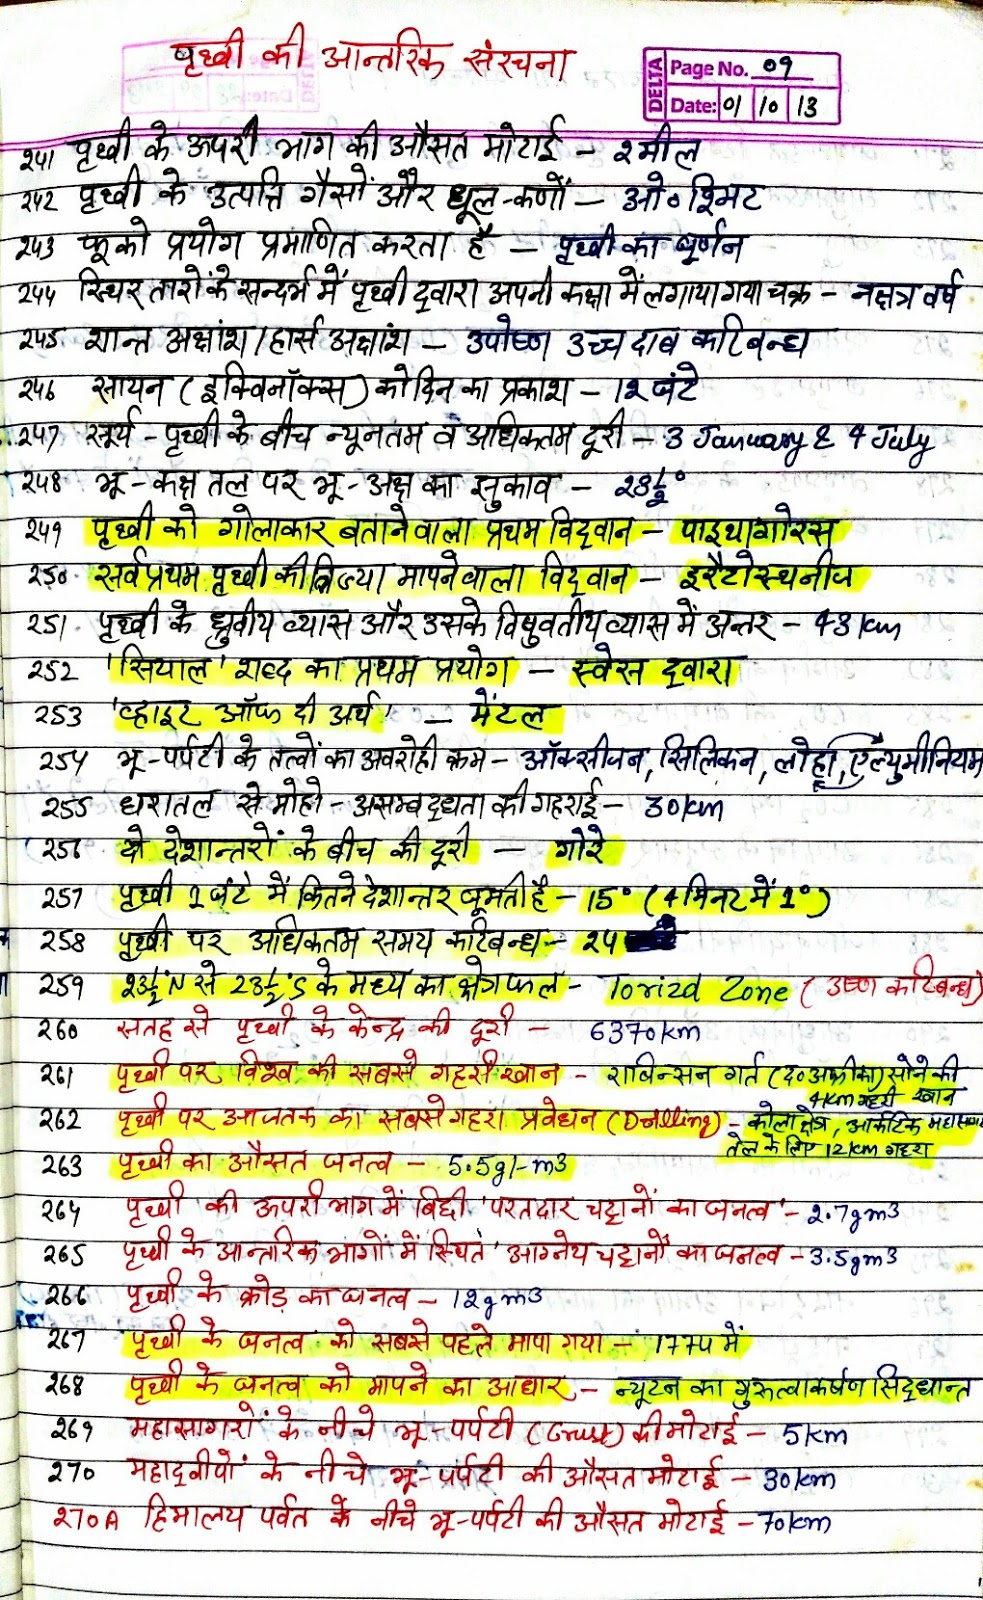 पृथ्वी की आन्तरिक संरचना
DELTA
Page No. 09
Date: 01 10 13
241 पृथ्वी के ऊपरी भाग की औसत मोटाई – 2मील
242 पृथ्वी के उत्पत्ति गैसों और धूल-कणों – ओ० श्मिट
243 फूको प्रयोग प्रमाणित करता है – पृथ्वी का घूर्णन
244 स्थिर तारों के सन्दर्भ में पृथ्वी द्वारा अपनी कक्षा में लगाया गया चक्र – नक्षत्र वर्ष
245. शान्त अक्षांश / हार्स अक्षांश – उपोष्ण उच्च दाब कटिबन्ध
246 सायन (इक्विनॉक्स) को दिन का प्रकाश – 12 घंटे
247 सूर्य - पृथ्वी के बीच न्यूनतम व अधिकतम दूरी – 3 January & 4 July
248 भू-कक्ष तल पर भू-अक्ष का झुकाव – 23½°
249 पृथ्वी को गोलाकार बताने वाला प्रथम विद्वान – पाइथागोरस
250. सर्वप्रथम पृथ्वी की त्रिज्या मापने वाला विद्वान – इरैटोस्थनीज
251. पृथ्वी के ध्रुवीय व्यास और उसके विषुवतीय व्यास में अन्तर – 43 km
252 'सियाल' शब्द का प्रथम प्रयोग – स्वेस द्वारा
253 'व्हाइट ऑफ दी अर्थ' – मेंटल
254 भू-पर्पटी के तत्वों का अवरोही क्रम – ऑक्सीजन, सिलिकन, लोहा, एल्युमीनियम
255 धरातल से मोहो-असम्बद्धता की गहराई – 30km
256 दो देशान्तरों के बीच की दूरी – गोरे
257 पृथ्वी 1 घंटे में कितने देशान्तर घूमती है – 15° (4 मिनट में 1°)
258 पृथ्वी पर अधिकतम समय कटिबन्ध – 24
259 23½°N से 23½°S के मध्य का क्षेत्रफल – Torizd Zone (उष्ण कटिबन्ध)
260 सतह से पृथ्वी के केन्द्र की दूरी – 6370km
261 पृथ्वी पर विश्व की सबसे गहरी खान – राबिन्सन गर्त (द० अफ्रीका) सोने की
4km गहरी खान
262 पृथ्वी पर आजतक का सबसे गहरा प्रवेधन (Drilling) – कोला क्षेत्र, आर्कटिक महासागर
तेल के लिए 12km गहरा
263 पृथ्वी का औसत घनत्व – 5.5g/-m3
264 पृथ्वी की ऊपरी भाग में बिछी 'परतदार चट्टानों का घनत्व' – 2.7gm3
265 पृथ्वी के आन्तरिक भागों में स्थित 'आग्नेय चट्टानों का घनत्व – 3.5gm3
266 पृथ्वी के क्रोड़ का घनत्व – 12gm3
267 पृथ्वी के घनत्व को सबसे पहले मापा गया – 1774 में
268 पृथ्वी के घनत्व को मापने का आधार – न्यूटन का गुरुत्वाकर्षण सिद्धान्त
269 महासागरों के नीचे भू-पर्पटी (Crust) की मोटाई – 5km
270 महाद्वीपों के नीचे भू-पर्पटी की औसत मोटाई – 30km
270A हिमालय पर्वत के नीचे भू-पर्पटी की औसत मोटाई – 70km